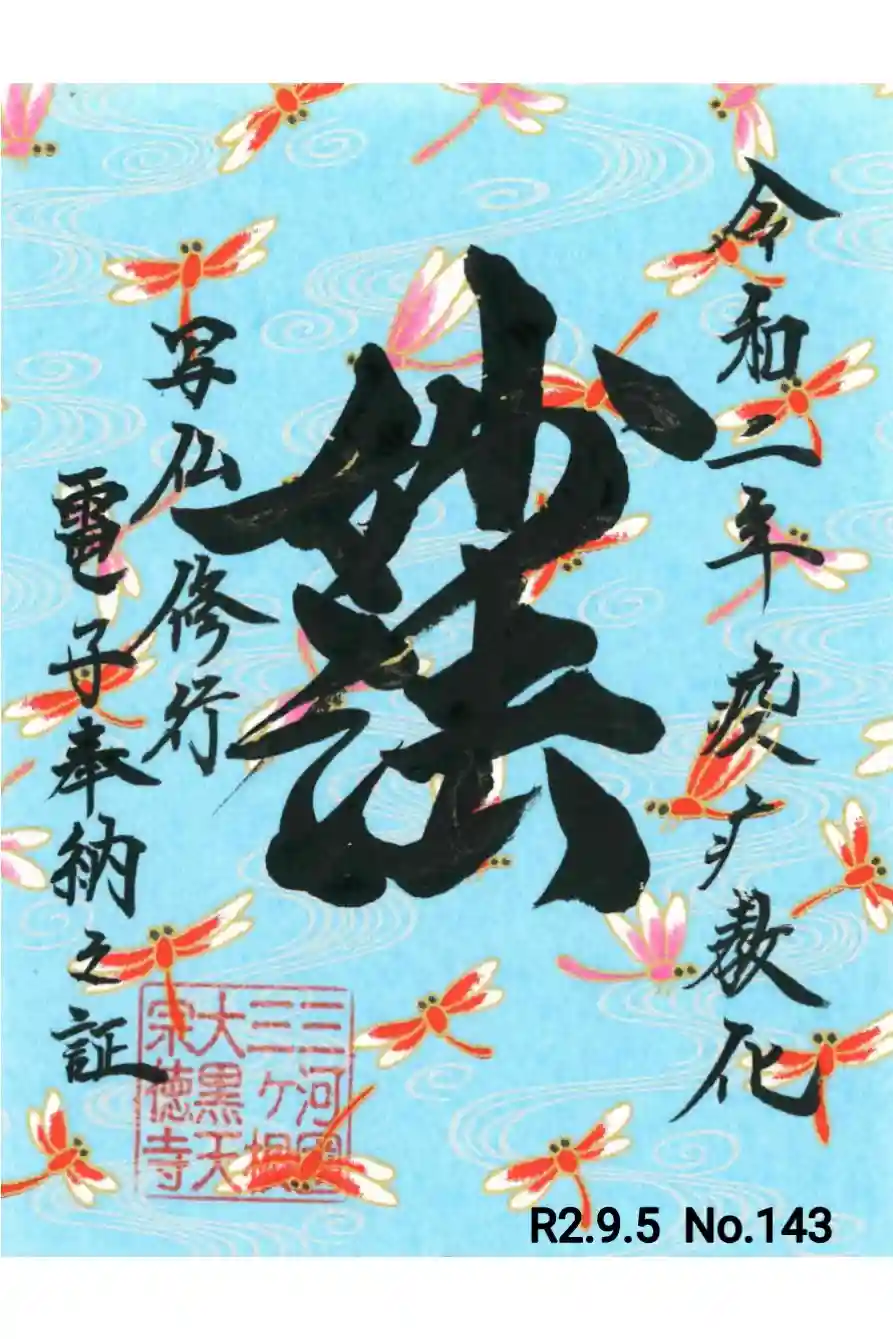 令和二年 疫 教化
妙法
写仏修行
電子奉納之証
三河国
三ヶ根
大黒天
宗徳寺
R2.9.5 No.143